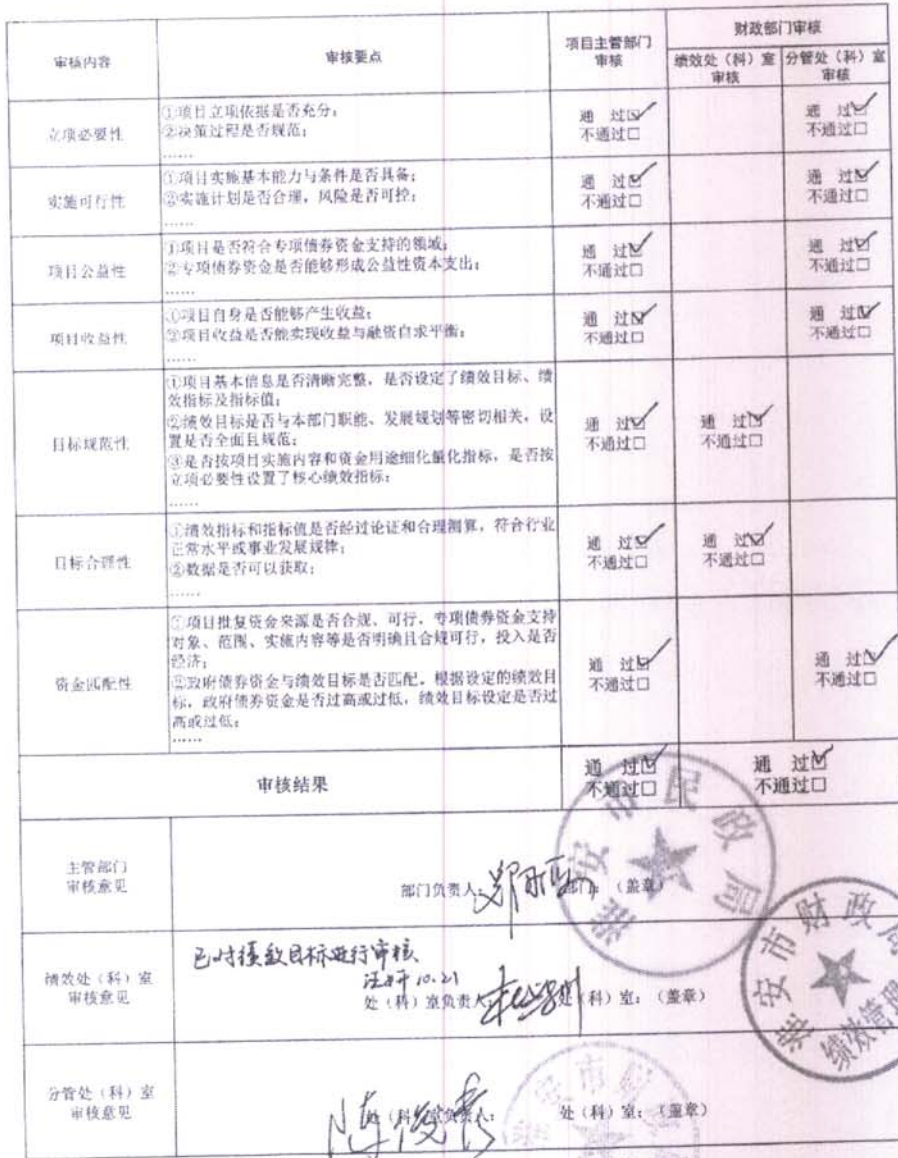 审核内容 审核要点 项目主管部门审核 财政部门审核
绩效处（科）室审核 分管处（科）室审核
立项必要性
①项目立项依据是否充分；
②决策过程是否规范；
……
通 过☑ 通 过☑
不通过□ 不通过□
实施可行性
①项目实施基本能力与条件是否具备；
②实施计划是否合理，风险是否可控；
……
通 过☑ 通 过☑
不通过□ 不通过□
项目公益性
①项目是否符合专项债券资金支持的领域；
②专项债券资金是否能够形成公益性资本支出；
……
通 过☑ 通 过☑
不通过□ 不通过□
项目收益性
①项目自身是否能够产生收益；
②项目收益是否能实现收益与融资自求平衡；
……
通 过☑ 通 过☑
不通过□ 不通过□
目标规范性
①项目基本信息是否清晰完整，是否设定了绩效目标、绩
效指标及指标值；
②绩效目标是否与本部门职能、发展规划等密切相关，设
置是否全面且规范；
③是否按项目实施内容和资金用途细化量化指标，是否按
立项必要性设置了核心绩效指标；
……
通 过☑ 通 过☑
不通过□ 不通过□
目标合理性
①绩效指标和指标值是否经过论证和合理测算，符合行业
正常水平或事业发展规律；
②数据是否可以获取；
……
通 过☑ 通 过☑
不通过□ 不通过□
资金匹配性
①项目批复资金来源是否合规、可行，专项债券资金支持
对象、范围、实施内容等是否明确且合规可行，投入是否
经济；
②政府债券资金与绩效目标是否匹配。根据设定的绩效目
标，政府债券资金是否过高或过低，绩效目标设定是否过
高或过低；
……
通 过☑ 通 过☑
不通过□ 不通过□
审核结果
通 过☑ 通 过☑
不通过□ 不通过□
主管部门
审核意见
部门负责人： 部门：（盖章）
淮安市民政局
绩效处（科）室
审核意见
已对绩效目标进行审核
10.21
处（科）室负责人 处（科）室：（盖章）
淮安市财政局
绩效管理
分管处（科）室
审核意见
处（科）室负责人： 处（科）室：（盖章）
安市财